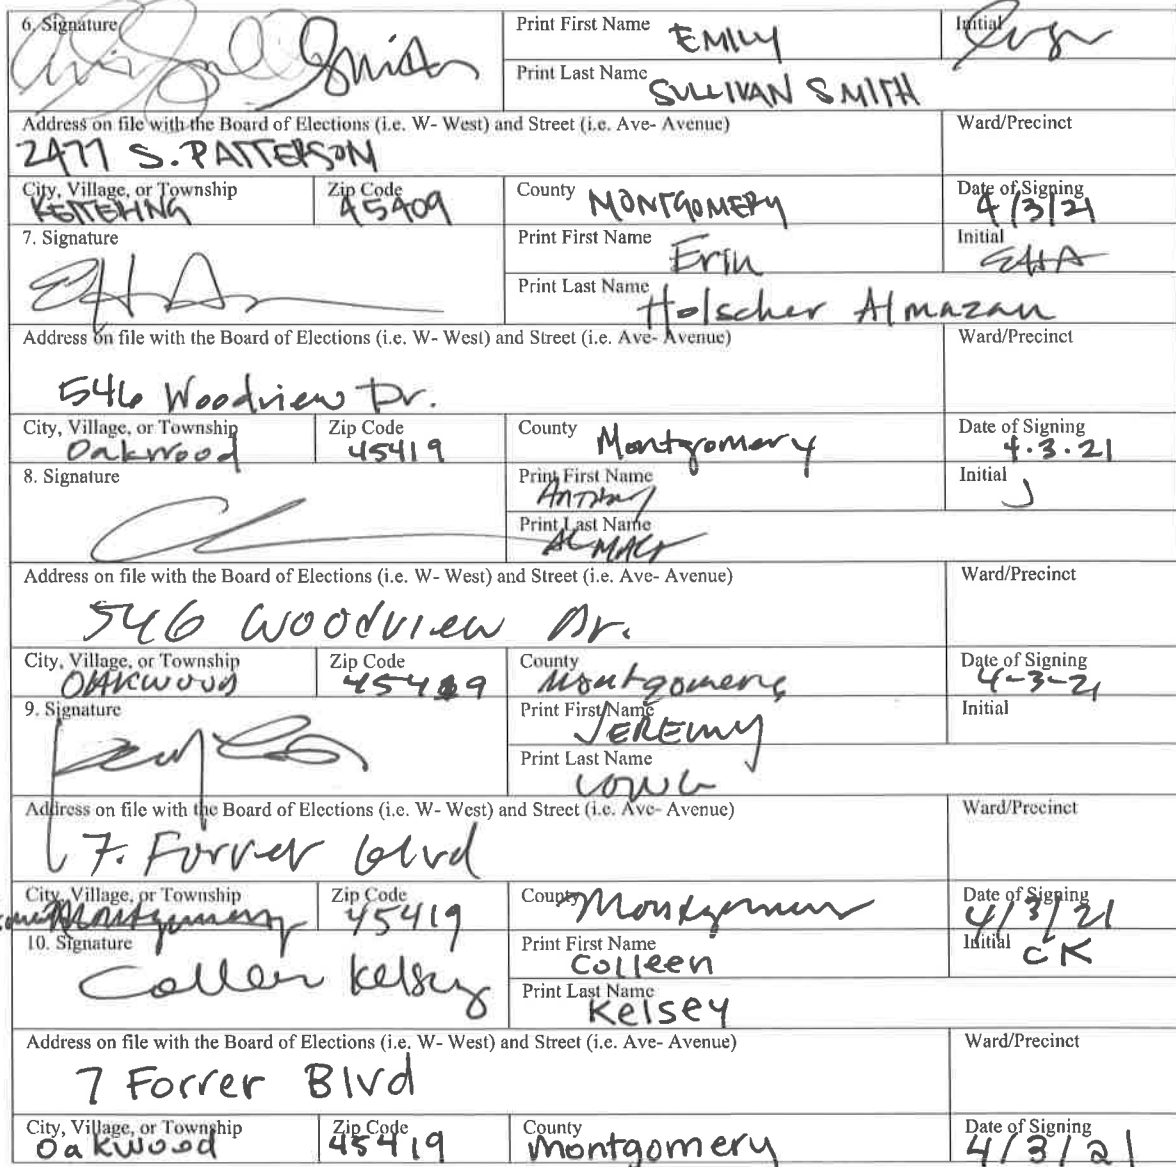 6. Signature Print First Name EMILY Initial
Smith Print Last Name SULLIVAN SMITH
Address on file with the Board of Elections (i.e. W- West) and Street (i.e. Ave- Avenue) Ward/Precinct
2477 S. PATTERSON
City, Village, or Township KETTERING Zip Code 45409 County MONTGOMERY Date of Signing 4/3/21
7. Signature Print First Name Erin Initial EHA
Print Last Name Holscher Almazan
Address on file with the Board of Elections (i.e. W- West) and Street (i.e. Ave- Avenue) Ward/Precinct
546 Woodview Dr.
City, Village, or Township Oakwood Zip Code 45419 County Montgomery Date of Signing 4.3.21
8. Signature Print First Name Anthony Initial J
Print Last Name
Address on file with the Board of Elections (i.e. W- West) and Street (i.e. Ave- Avenue) Ward/Precinct
546 Woodview Dr.
City, Village, or Township OAKWOOD Zip Code 45419 County Montgomery Date of Signing 4-3-21
9. Signature Print First Name JEREMY Initial
Print Last Name
Address on file with the Board of Elections (i.e. W- West) and Street (i.e. Ave- Avenue) Ward/Precinct
7. Forrer blvd
City, Village, or Township Montgomery Zip Code 45419 County Montgomery Date of Signing 4/3/21
10. Signature Colleen Kelsey Print First Name Colleen Initial CK
Print Last Name Kelsey
Address on file with the Board of Elections (i.e. W- West) and Street (i.e. Ave- Avenue) Ward/Precinct
7 Forrer Blvd
City, Village, or Township Oakwood Zip Code 45419 County Montgomery Date of Signing 4/3/21